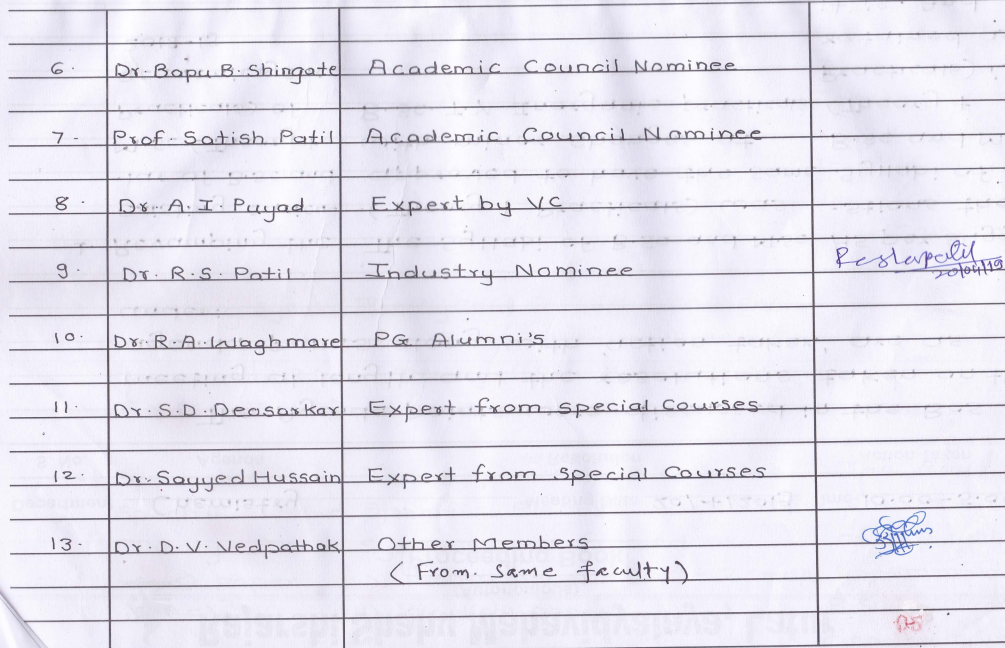 6. Dr. Bapu B. Shingate Academic Council Nominee
7. Prof. Satish Patil Academic Council Nominee
8. Dr. A. I. Puyad Expert by VC
9. Dr. R.S. Patil Industry Nominee 20/04/19
10. Dr. R.A. Waghmare PG Alumni's
11. Dr. S.D. Deosarkar Expert from special Courses
12. Dr. Sayyed Hussain Expert from special Courses
13. Dr. D. V. Vedpathak Other Members
(From. same faculty)